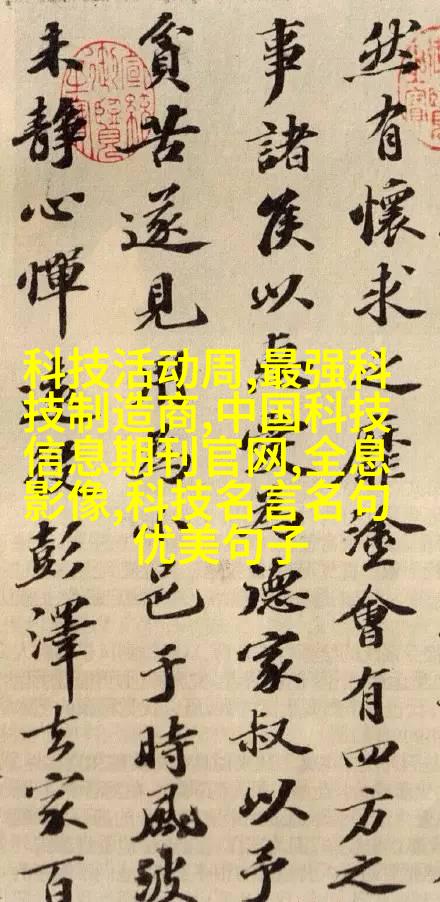 然有懷求之靡塗會有四方之
事諸侯以德家叔以予
貧苦遂見小邑于時風波
未靜心憚彭澤去家百
科技活动周,最强科
技制造商,中国科技
信息期刊官网,全息
影像,科技名言名句
优美句子